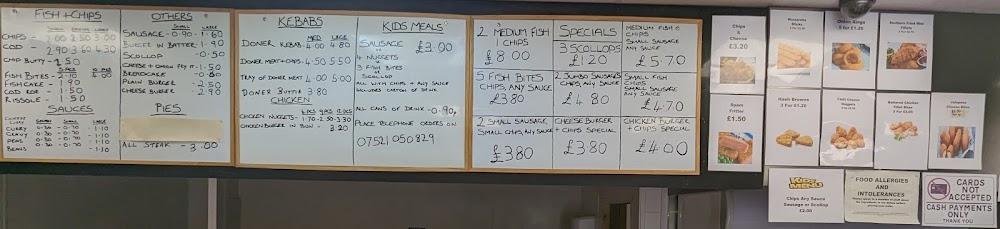 FISH + CHIPS
SMALL MEDIUM LARGE
CHIPS - 2.00 2.50 3.00
COD - 2.90 3.60 4.30
CHIP BUTTY - 2.50
5 PCS 10 PCS
FISH BITES - 2.10 4.00
FISHCAKE - 1.90
COD ROE - 1.50
RISSOLE - 1.50
SAUCES
CURRY 0.30 - 0.70 - 1.10
GRAVY 0.30 - 0.70 - 1.10
PEAS 0.30 - 0.70 - 1.10
BEANS 0.30 - 0.70 - 1.10
OTHERS
SMALL LARGE
SAUSAGE - 0.90 - 1.60
BURGER IN BATTER - 1.90
SCOLLOP - 0.50
CHEESE + ONION PTY IT - 1.50
BREADCAKE - 0.60
PLAIN BURGER - 2.50
CHEESE BURGER - 2.90
PIES
ALL STEAK - 3.00
KEBABS
MED LARGE
DONER KEBAB - 4.00 4.80
DONER MEAT + CHIPS - 4.50 5.50
TRAY OF DONER MEAT 4.00 5.00
DONER BUTTY 3.80
CHICKEN
6 PCS 9 PCS 12 PCS
CHICKEN NUGGETS - 1.70 - 2.50 - 3.30
CHICKEN BURGER IN BUN - 3.20
KIDS MEALS
SAUSAGE £3.00
OR
4 NUGGETS
OR
3 FISH BITES
OR
SCOLLOP
ALL WITH CHIPS + ANY SAUCE
INCLUDES CARTON OF DRINK
ALL CANS OF DRINK - 0.90p
PLACE TELEPHONE ORDERS ON
07521 050829
2 MEDIUM FISH
1 CHIPS
£8.00
SPECIALS
3 SCOLLOPS
£1.20
MEDIUM FISH &
CHIPS
SMALL SAUSAGE
ANY SAUCE
£5.70
5 FISH BITES
CHIPS, ANY SAUCE
£3.80
2 JUMBO SAUSAGES
CHIPS, ANY SAUCE
£4.80
SMALL FISH
CHIPS
SMALL SAUSAGE
ANY SAUCE
£4.70
2 SMALL SAUSAGE
SMALL CHIPS, ANY SAUCE
£3.80
CHEESE BURGER
+ CHIPS SPECIAL
£3.80
CHICKEN BURGER
+ CHIPS SPECIAL
£4.00
Chips
&
Cheese
£3.20
Mozzarella
Sticks
Onion Rings
5 For £1.25
Southern Fried Mini
Fillets
Spam
Fritter
£1.50
Hash Browns
3 For £1.25
Chilli Cheese
Nuggets
Battered Chicken
Fillet Bites
Jalapeno
Cheese Bites
KIDS
MENU
Chips Any Sauce
Sausage or Scollop
£2.00
FOOD ALLERGIES
AND
INTOLERANCES
CARDS
NOT
ACCEPTED
CASH PAYMENTS
ONLY
THANK YOU